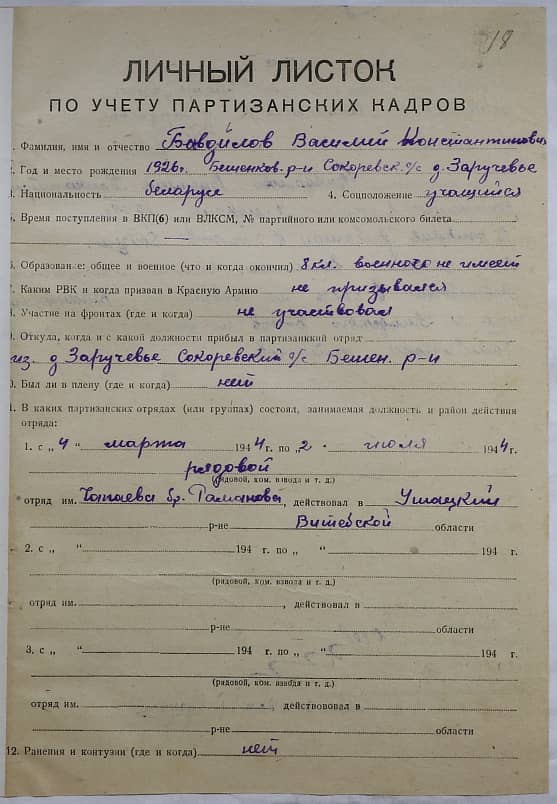 18
ЛИЧНЫЙ ЛИСТОК
ПО УЧЕТУ ПАРТИЗАНСКИХ КАДРОВ
. Фамилия, имя и отчество Бавдилов Василий Константинович
2. Год и место рождения 1926г. Бешенков. р-н Сокоревск. с/с д. Заручевье
3. Национальность беларус 4. Соцположение учащийся
5. Время поступления в ВКП(б) или ВЛКСМ, № партийного или комсомольского билета
—
6. Образование: общее и военное (что и когда окончил) 8 кл. военного не имеет
7. Каким РВК и когда призван в Красную Армию не призывался
8. Участие на фронтах (где и когда) не участвовал
9. Откуда, когда и с какой должности прибыл в партизанский отряд
из д Заручевье Сокоревский с/с Бешен. р-н
0. Был ли в плену (где и когда) нет
1. В каких партизанских отрядах (или группах) состоял, занимаемая должность и район действия
отряда:
1. с „4" марта 1944 г. по „2" июля 1944 г.
рядовой
(рядовой, ком. взвода и т. д.)
отряд им. Чапаева бр. Романова, действовал в Ушацкий
р-не Витебской области
2. с „ " 194 г. по „ " 194 г.
(рядовой, ком. взвода и т. д.)
отряд им. , действовал в
р-не области
3. с „ " 194 г. по „ " 194 г.
(рядовой, ком. взвода и т. д.)
отряд им. , действововал в
р-не области
12. Ранения и контузии (где и когда) нет